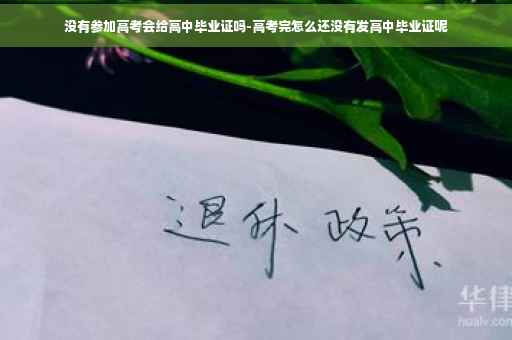 没有参加高考会给高中毕业证吗-高考完怎么还没有发高中毕业证呢
退休 政策
华律
hualv.com